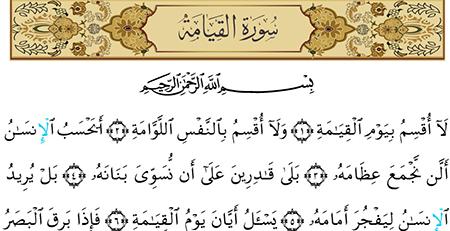 سُورَةُ القِيَامَةِ
بِسْمِ ٱللَّهِ ٱلرَّحْمَٰنِ ٱلرَّحِيمِ
لَآ أُقْسِمُ بِيَوْمِ ٱلْقِيَٰمَةِ ﴿١﴾ وَلَآ أُقْسِمُ بِٱلنَّفْسِ ٱللَّوَّامَةِ ﴿٢﴾ أَيَحْسَبُ ٱلْإِنسَٰنُ
أَلَّن نَّجْمَعَ عِظَامَهُۥ ﴿٣﴾ بَلَىٰ قَٰدِرِينَ عَلَىٰٓ أَن نُّسَوِّىَ بَنَانَهُۥ ﴿٤﴾ بَلْ يُرِيدُ
ٱلْإِنسَٰنُ لِيَفْجُرَ أَمَامَهُۥ ﴿٥﴾ يَسْـَٔلُ أَيَّانَ يَوْمُ ٱلْقِيَٰمَةِ ﴿٦﴾ فَإِذَا بَرِقَ ٱلْبَصَرُ